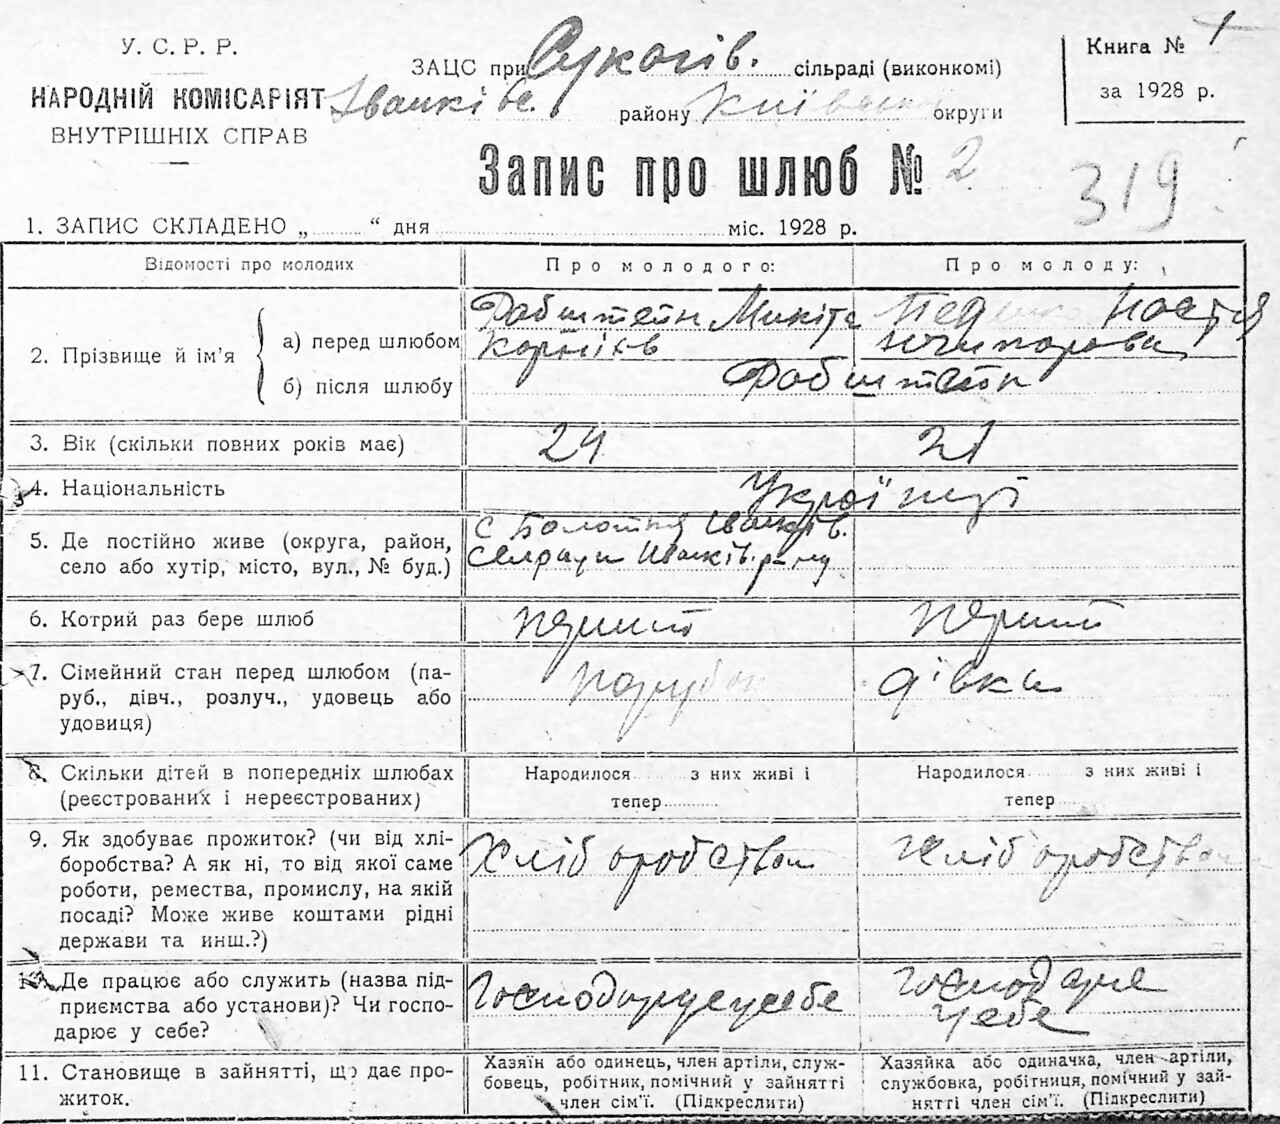 У. С. Р. Р.
НАРОДНІЙ КОМІСАРІЯТ
ВНУТРІШНІХ СПРАВ
ЗАЦС при сільраді (виконкомі)
Іванків. району Київської округи
Книга № 1
за 1928 р.
Запис про шлюб № 2
319
1. ЗАПИС СКЛАДЕНО „ “ дня міс. 1928 р.
Відомості про молодих
Про молодого:
Про молоду:
2. Прізвище й ім’я
а) перед шлюбом
Фабштейн Микіта
Настя
б) після шлюбу
Фабштейн
3. Вік (скільки повних років має)
24
21
4. Національність
Українці
5. Де постійно живе (округа, район,
село або хутір, місто, вул., № буд.)
с Болотня Іванків.
сельради Иванків. р-ну
6. Котрий раз бере шлюб
перший
перший
7. Сімейний стан перед шлюбом (па-
руб., дівч., розлуч., удовець або
удовиця)
парубок
дівка
8. Скільки дітей в попередніх шлюбах
(реєстрованих і нереєстрованих)
Народилося з них живі і
тепер
Народилося з них живі і
тепер
9. Як здобуває прожиток? (чи від хлі-
боробства? А як ні, то від якої саме
роботи, ремества, промислу, на якій
посаді? Може живе коштами рідні
держави та инш.?)
Хліборобством
Хліборобством
10. Де працює або служить (назва під-
приємства або установи)? Чи госпо-
дарює у себе?
Господарує у себе
Господарує
у себе
11. Становище в зайнятті, що дає про-
житок.
Хазяїн або одинець, член артіли, служ-
бовець, робітник, помічний у зайнятті
член сім’ї. (Підкреслити)
Хазяйка або одиначка, член артіли,
службовка, робітниця, помічний у зай-
нятті член сім’ї. (Підкреслити)